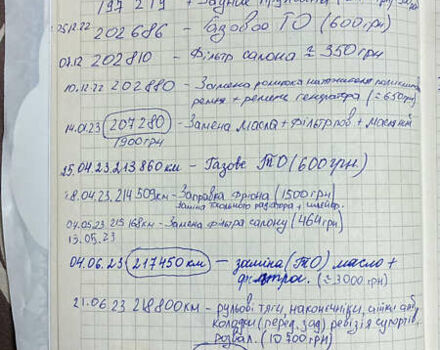 197 219 + Задние
25.12.22 202686 - Газовое ТО (600 грн)
07.12 202810 - Фільтр салона ≈ 350 грн
10.12.22 202880 - Замена ролика натяжителя
ремня + ремень генератора (≈ 650 грн)
14.01.23 207280 - Замена масла + фільтр пов. + масляный
1900грн
25.04.23 213860км - Газове ТО (600грн.)
28.04.23, 214509км - Заправка фріона (1500грн)
заміна + шлейф.
04.05.23 215168км - Замена фільтра салону (464грн)
13.05.23
04.06.23 217450км - заміна (ТО) масло +
фільтра. (≈ 3000 грн)
21.06.23 218800км - рульові тяги, наконечніки,
колодки (перед, зад) ревізія супортів
розвал. (10 700 грн)